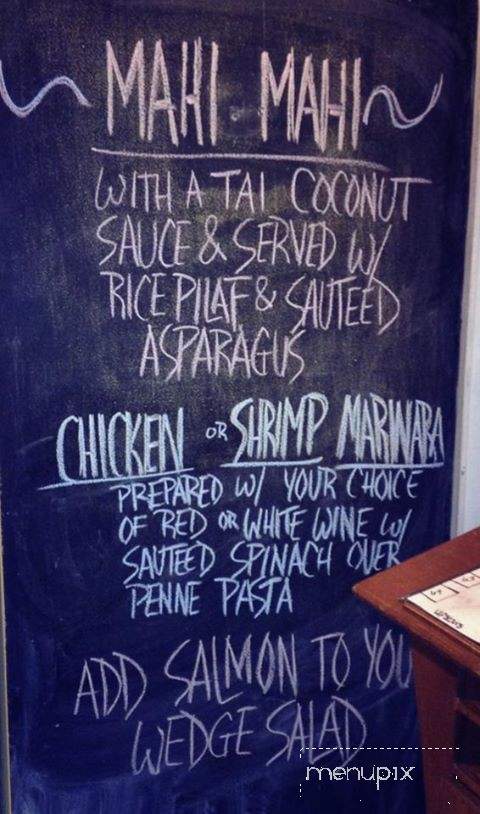 MAHI MAHI
WITH A TAI COCONUT
SAUCE & SERVED W/
RICE PILAF & SAUTEED
ASPARAGUS
CHICKEN OR SHRIMP MARINARA
PREPARED W/ YOUR CHOICE
OF RED OR WHITE WINE W/
SAUTEED SPINACH OVER
PENNE PASTA
ADD SALMON TO YOU
WEDGE SALAD
menupix